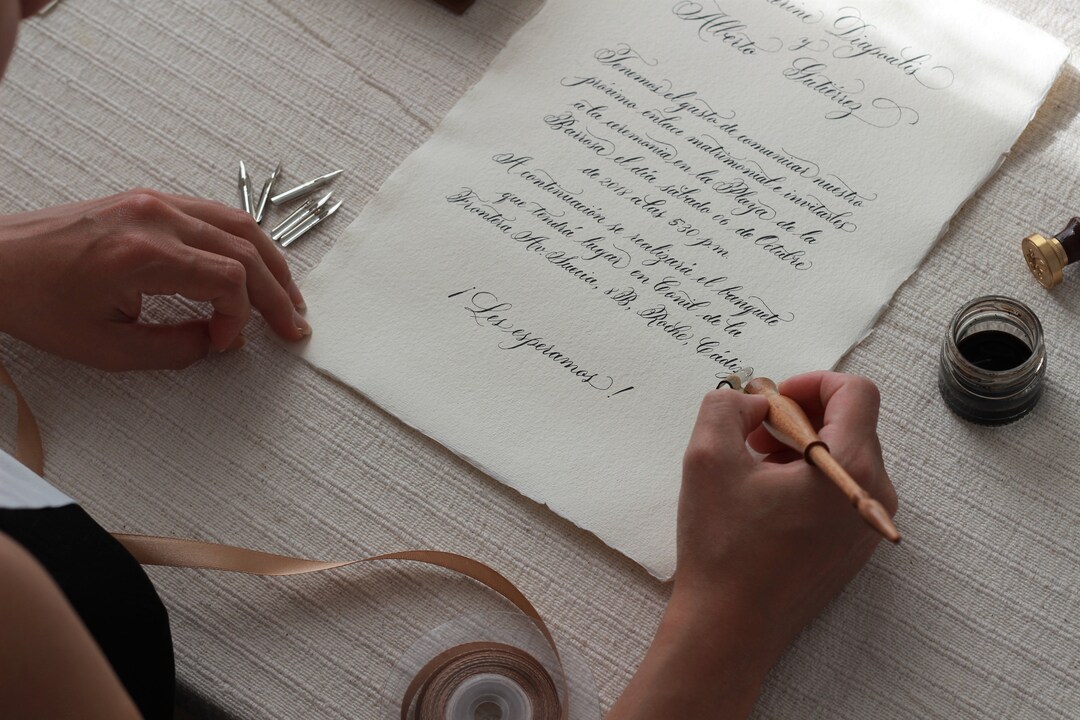 Diapoulis
y
Alberto Gutiérrez
Tenemos el gusto de comunicar nuestro
próximo enlace matrimonial e invitarles
a la ceremonia en la Playa de la
Barrosa el día sábado 06 de Octubre
de 2018 a las 5:30 pm
A continuación se realizará el banquete
que tendrá lugar en Conil de la
Frontera Av. Suecia, 8B, Roche, Cádiz
¡Les esperamos!